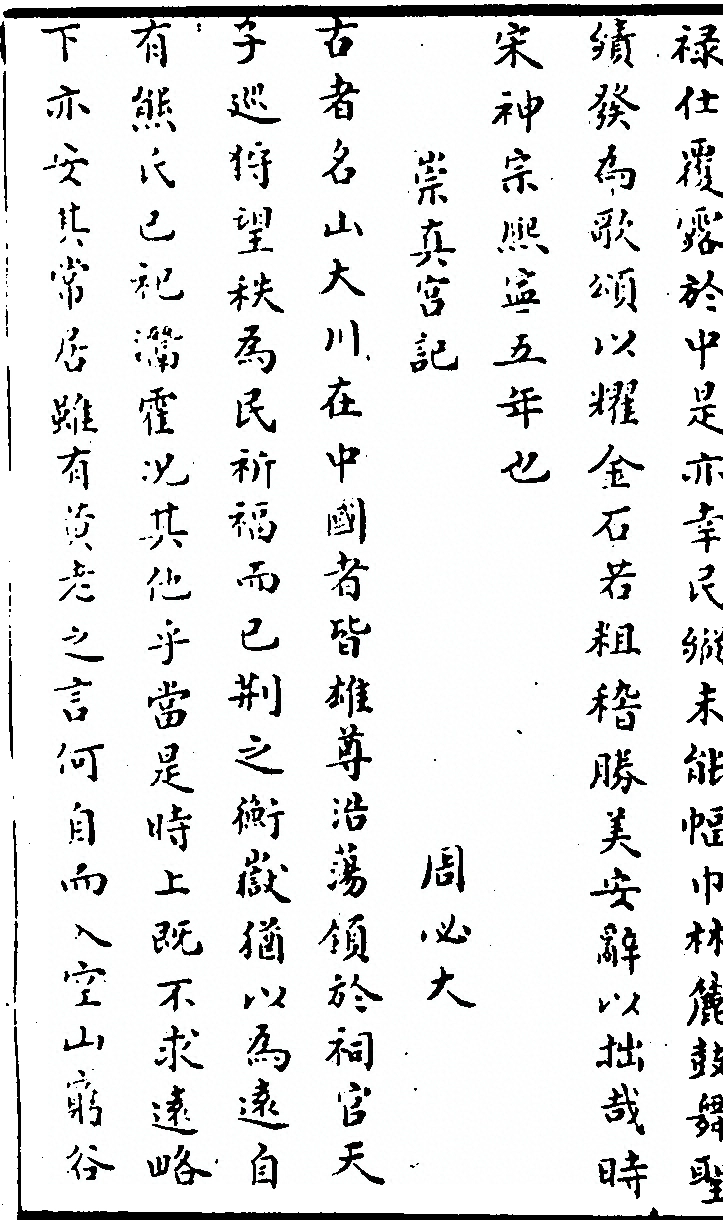 禄仕覆露於中是亦幸民縱未能幅巾林麓鼓舞聖
績發為歌頌以耀金石若粗稽勝美安辭以拙哉時
宋神宗熙寧五年也
崇真宮記 周必大
古者名山大川在中國者皆雄尊浩蕩領於祠官天
子巡狩望秩為民祈福而已荆之衡嶽猶以為遠自
有熊氏已祀灊霍况其他乎當是時上既不求遠略
下亦安其常居雖有黃老之言何自而入空山窮谷